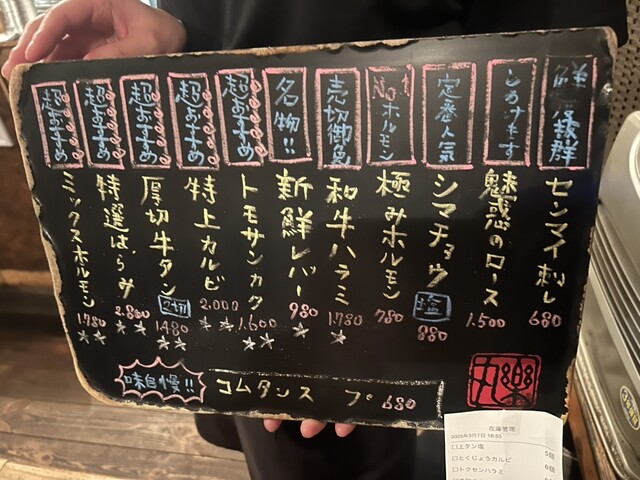 鮮度抜群
センマイ刺し
680
とろけます
魅惑のロース
1.500
定番人気
シマチョウ
塩
880
No.1ホルモン
極みホルモン
780
売切御免
和牛ハラミ
1.780
☆
名物!!
新鮮レバー
980
☆
超おすすめ
トモサンカク
1.600
☆☆
超おすすめ
特上カルビ
2.000
☆☆
超おすすめ
厚切牛タン
2切
1480
☆☆
超おすすめ
特選はらみ
2.800
☆☆
超おすすめ
ミックスホルモン
1.780
☆☆
味自慢!!
コムタンスープ 680
丸樂
在庫管理
2025年3月7日 16:55
□上タン塩
□とくじょうカルビ
□トクセンハラミ